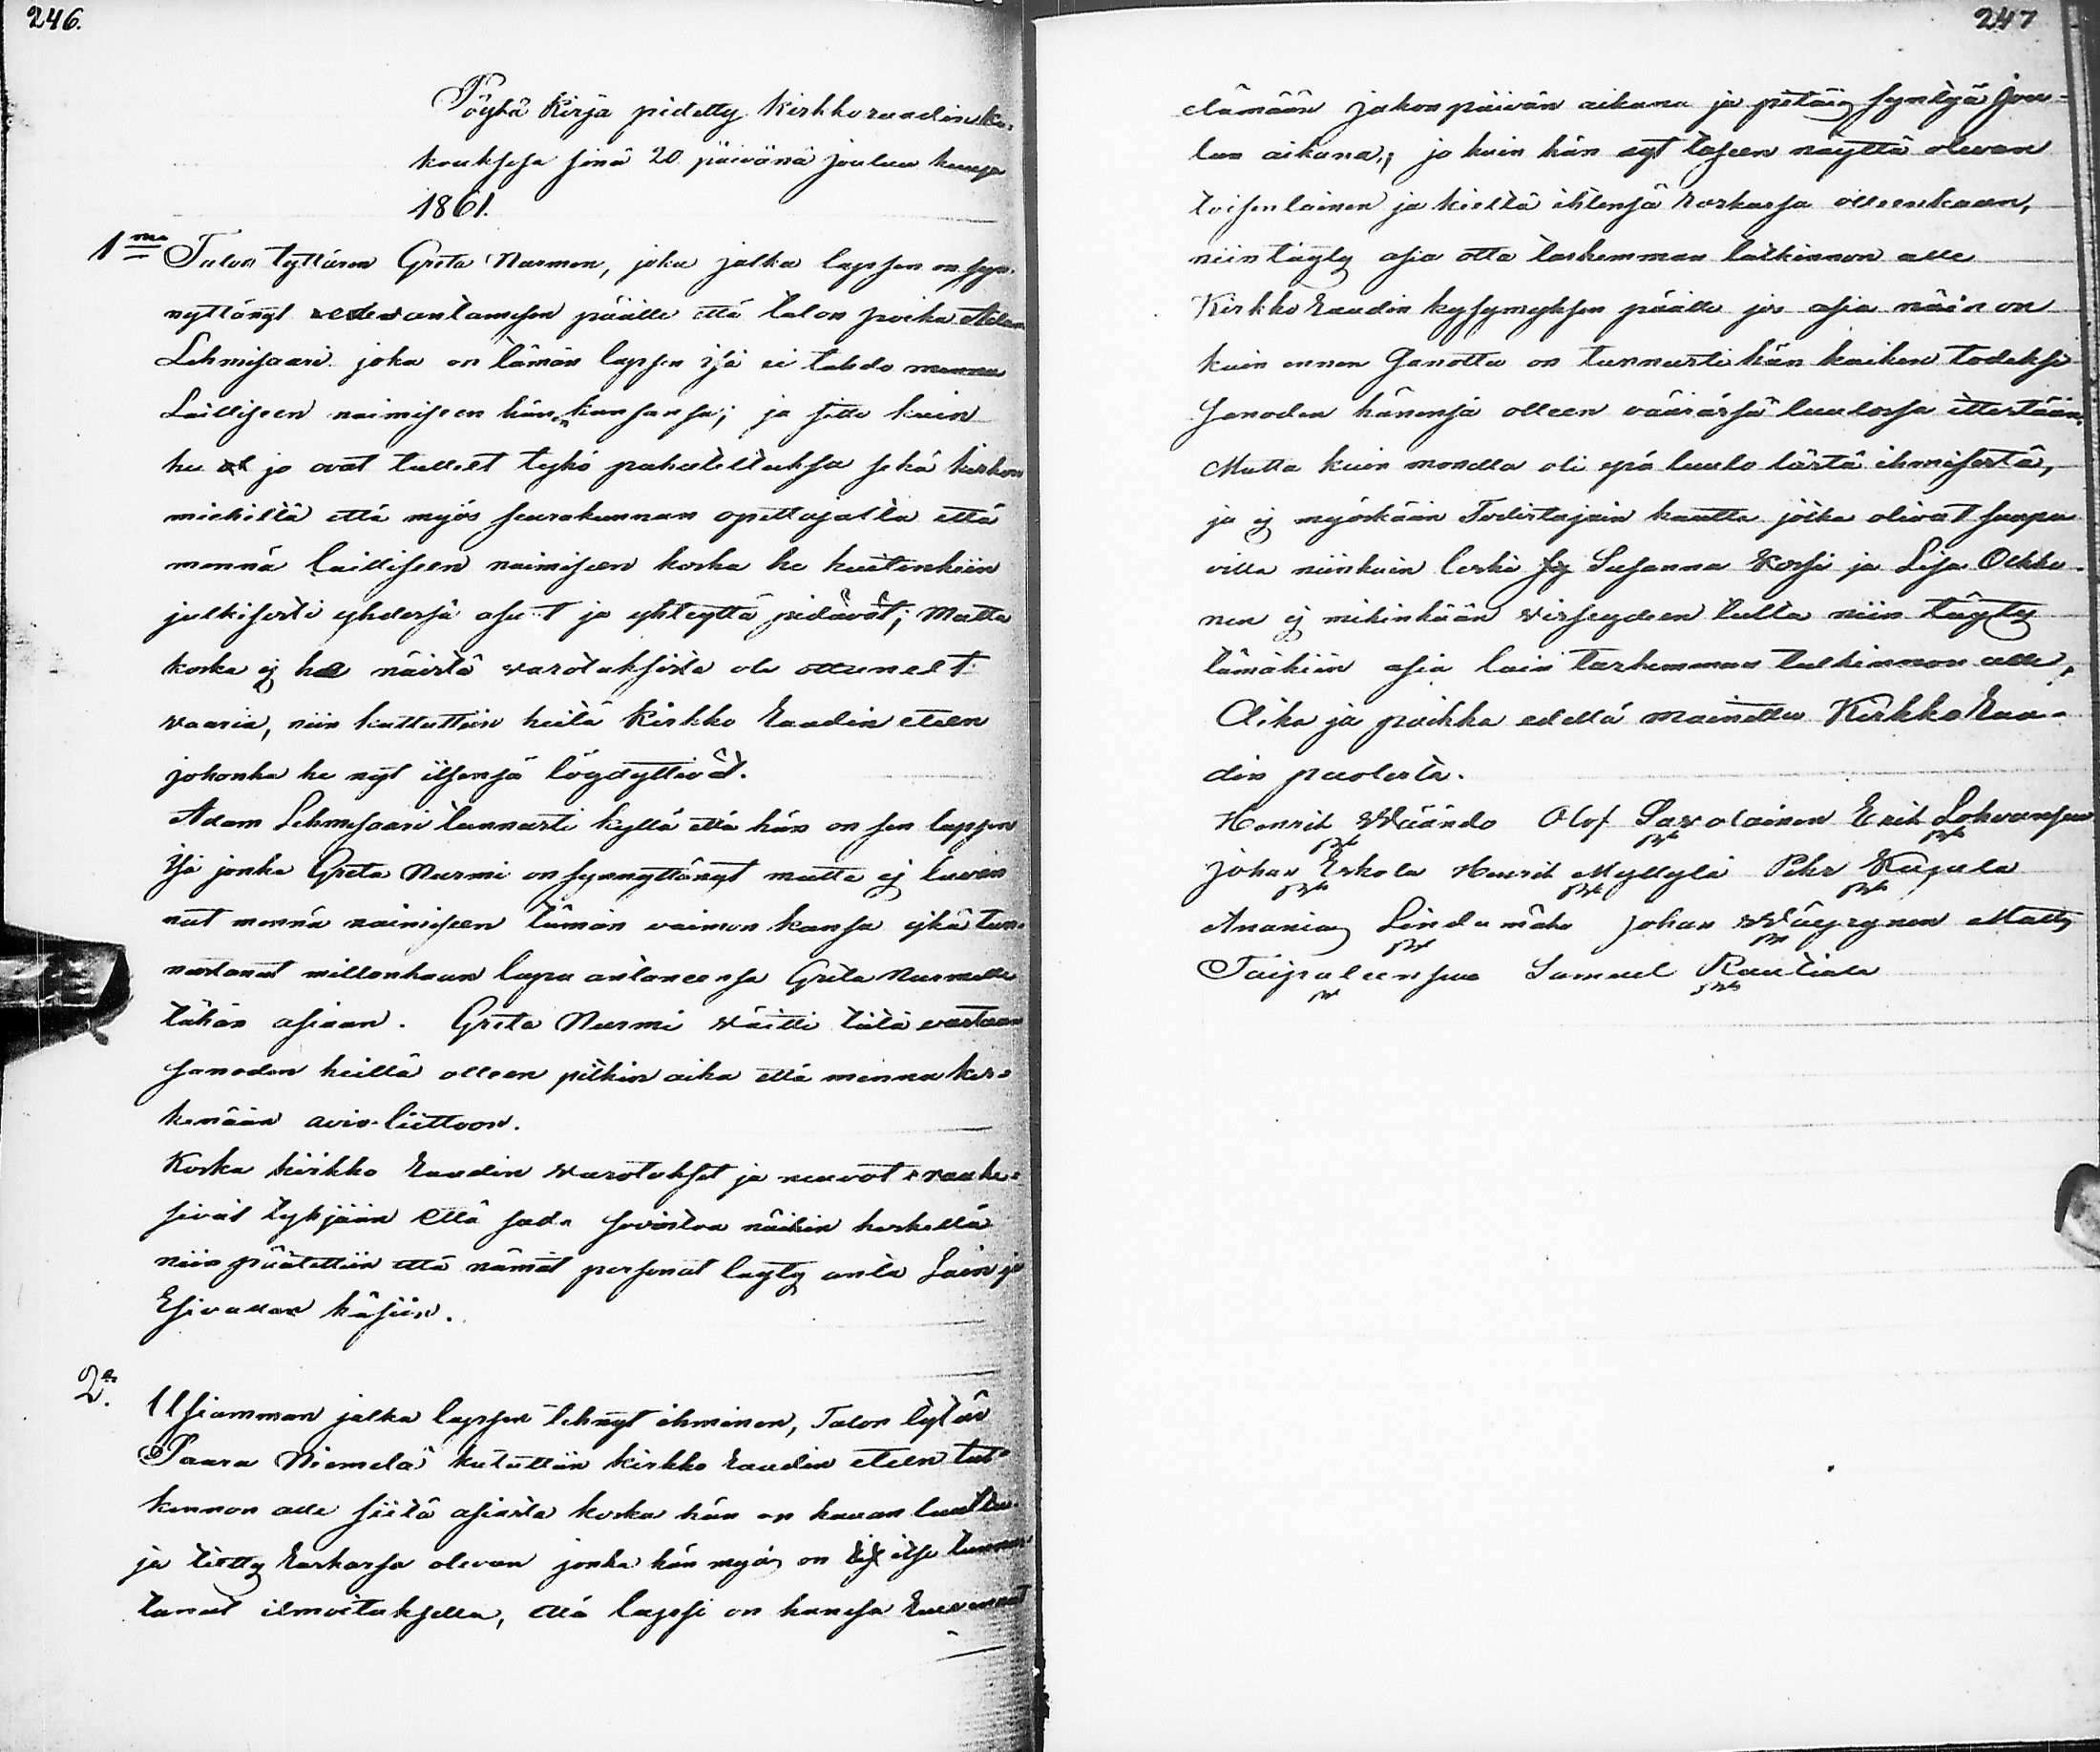 246.
Pöytä Kirja pidetty Kirkkoraadin ko-
kouksesa sinä 20 päivänä joulun kuusa
1861.
1mo Talon tyttären Greta Nurmen, joka jalka lapsen on syn-
nyttänyt antamisen päälle että talon poika Adam
Lehmisaari joka on tämän lapsen isä ei tahdo menna
Lailliseen naimiseen hänen kansansa; ja sitte kuin
he jo ovat tullet tykö puhutelluksa sekä kirkon
miehiltä että myös seurakunnan opettajalta että
mennä lailliseen naimiseen koska he kuitenkiin
julkisesti yhdessä asut ja yhteyttä pidävät; Mutta
koska ej he näistä varotuksista ole ottunet
vaaria, niin kuttuttiin heitä Kirkko Raadin eteen
johonka he nyt itsensä löydyttivät.
Adam Lehmisaari tunnusti kyllä että hän on sen lapsen
isä jonka Greta Nurmi on synnyttänyt mutta ej luvan
nut mennä naimiseen tämän vaimon kansa eikä tun-
nustanut millonkaan lupa antaneensa Greta Nurmelle
tähän asiaan. Greta Nurmi väitti tätä vastaan
sanoden heillä olleen pitkin aika että menna kes-
kenään avio-liittoon.
Koska kirkko Raadin varotukset ja neuvot rauke-
sivat tyhjään että sada sovintoa näihin keskellä
niin päätettiin että nämät personat täyty anta Lain ja
Esivallan käsiin.
2o. Usiamman jalka lapsen tehnyt ihminen, Talon tytär
Saara Niemelä kututtiin kirkko Raadin eteen tut-
kinnon alle siitä asiasta koska hän on kauan luultu
ja tietty Raskassa olevan jonka hän myös on itse tunnus
tanut ilmoituksella, että lapsi on hanesa Ruvennut
247
elämään jakonpäivän aikana ja pitäis syntyä Jou-
lun aikana; ja kuin hän nyt taseen näyttä olevan
toisenlainen ja kieltä ittensä raskassa olleenkaan,
niin täyty asia otta tarkemman tutkinnon alle
Kirkko Raadin kysymyksen päälle jos asia näin on
kuin ennen Sanottu on tunnusti hän kaiken todeksi
sanoden hänensä olleen väärässä luulossa ittestään.
Mutta kuin monella oli epä luulo tästä ihmisestä,
ja ej myöskään Todistajain kautta jotka olivat saapu
villa niinkuin leski Susanna Korsi ja Lisa Olkko-
nen ej mihinkään visseydeen tulla niin täyty
tämäkiin asia lain tarkemman tutkinnon alle,
Aika ja paikka edellä mainittu Kirkko Raa-
din puolesta.
Henrik Wäändo Olof Savolainen Erik Lohvansuu
Johan Eskola Henrik Myllylä Pehr Kujala
Ananias Lindumäke Johan Wäyrynen Matts
Taipaleensuu Samuel Rautiala